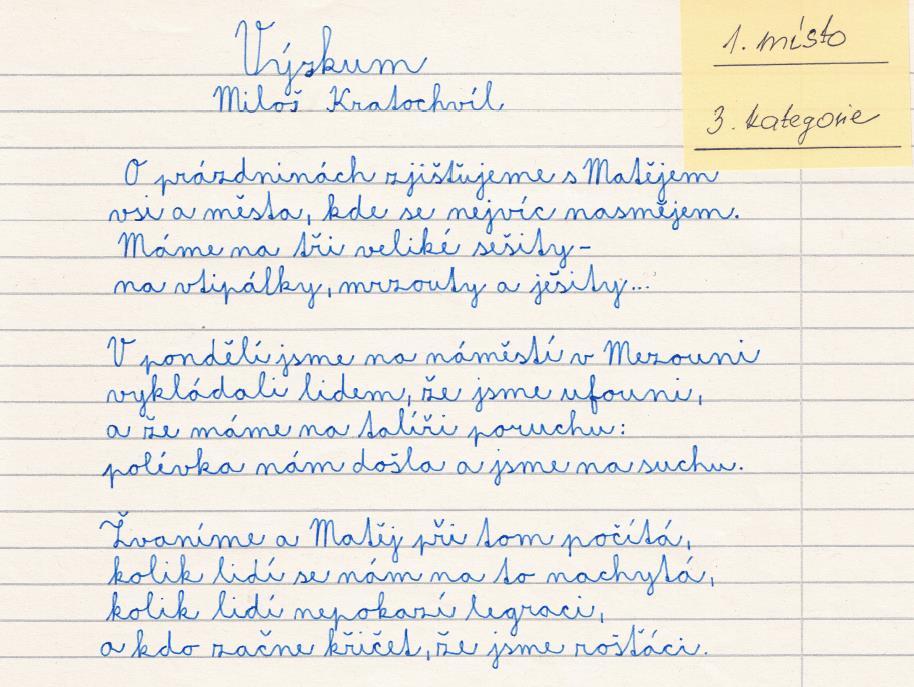 Výzkum
Miloš Kratochvíl
1. místo
3. kategorie
O prázdninách zjišťujeme s Matějem
vsi a města, kde se nejvíc nasmějem.
Máme na tři veliké sešity-
na vtipálky, mrzouty a ješity...
V pondělí jsme na náměstí v Mezouni
vykládali lidem, že jsme ufouni,
a že máme na talíři poruchu:
polévka nám došla a jsme na suchu.
Žvaníme a Matěj při tom počítá,
kolik lidí se nám na to nachytá,
kolik lidí nepokazí legraci,
a kdo začne křičet, že jsme rošťáci.